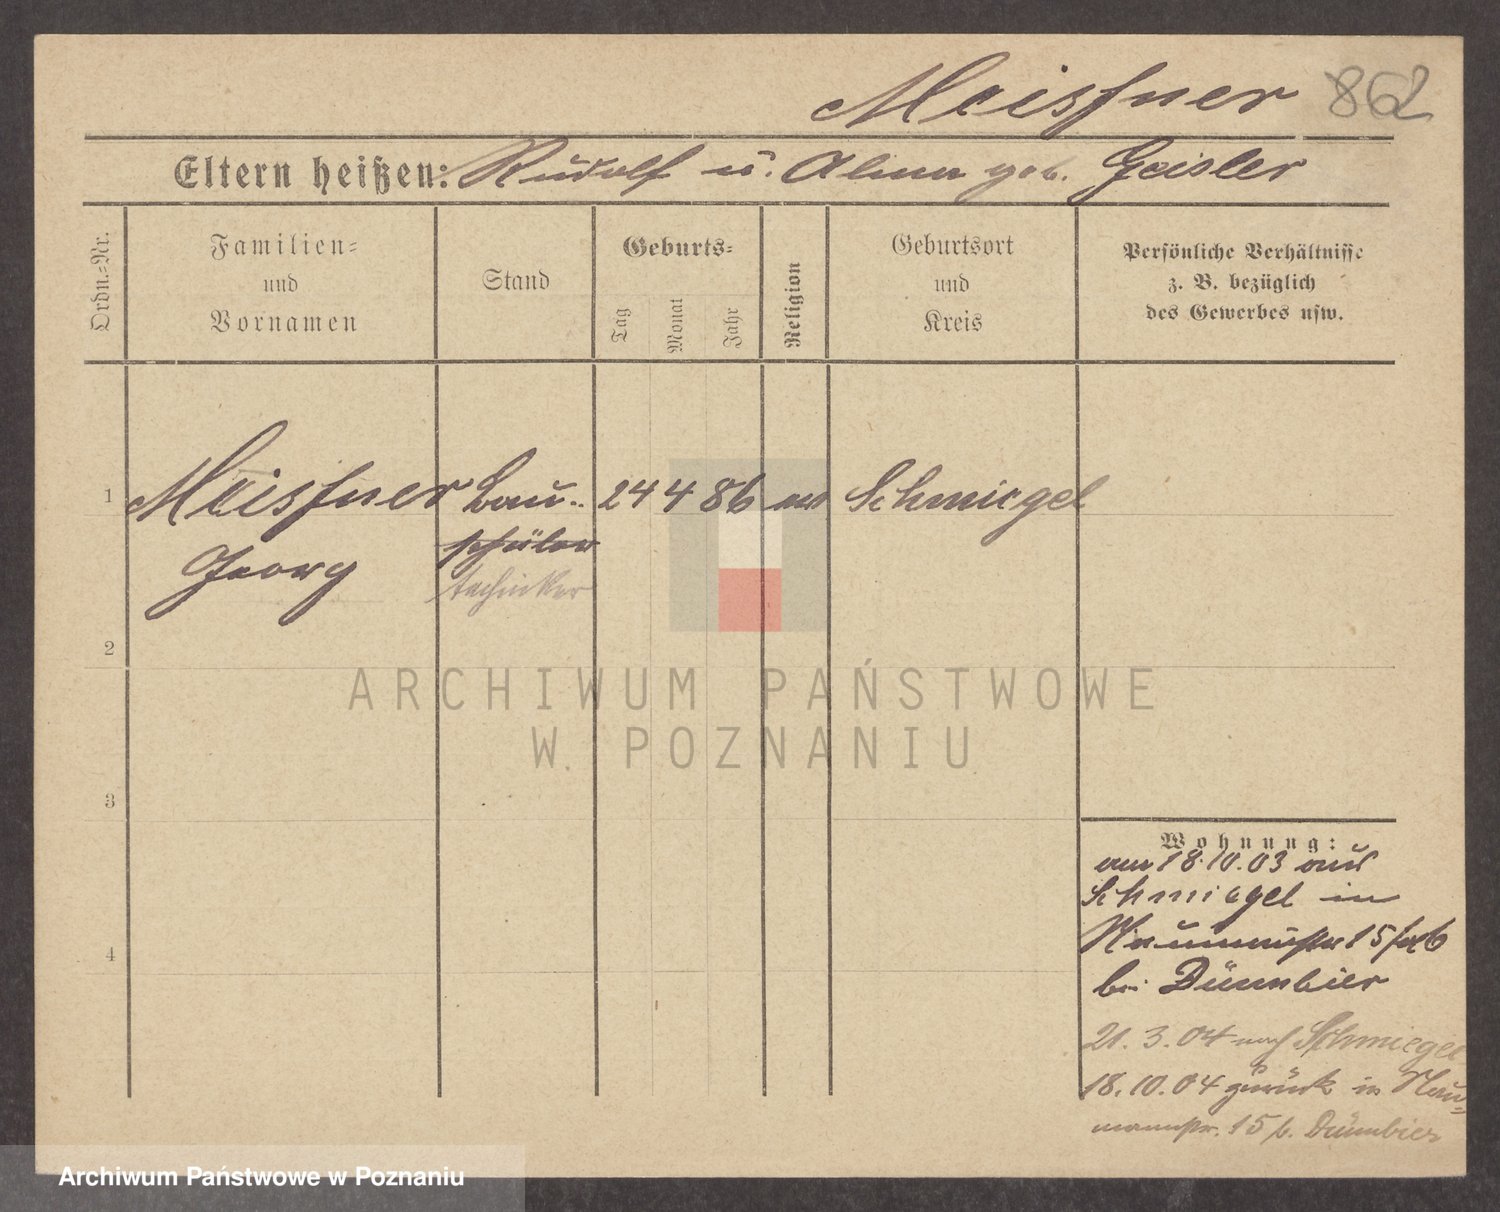 Meissner 862
Eltern heißen: Rudolf u. Alma geb. Geisler
Ordn.-Nr.
Familien-
und
Vornamen
Stand
Geburts-
Tag
Monat
Jahr
Religion
Geburtsort
und
Kreis
Persönliche Verhältnisse
z. B. bezüglich
des Gewerbes usw.
1 Meissner Bau- 24 4 86 Schmiegel
schüler
Georg
techniker
2
3
4
Wohnung:
am 18.10.03 aus
Schmiegel in
Naumannstr 15
bei Dünnbier
21.3.04 nach Schmiegel
18.10.04 zurück in Nau-
mannstr. 15 b. Dünnbier
ARCHIWUM PAŃSTWOWE
W POZNANIU
Archiwum Państwowe w Poznaniu